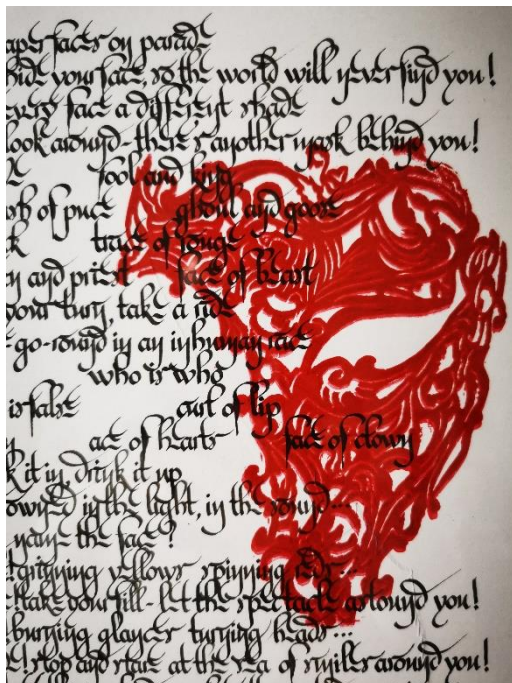 aper faces on parade
hide your face, so the world will never find you!
every face a different shade
look around - there's another mask behind you!
fool and king
oh of puce ghoul and goose
trace of rouge
n and priest face of beast
your turn, take a ride
e go-round in an inhuman race
who is who
is false curl of lip
ace of hearts face of clown
k it in, drink it up
owned in the light, in the sound...
name the face?
! grinning yellows spinning reds...
! take your fill - let the spectacle astound you!
! burning glances turning heads...
e! stop and stare at the sea of smiles around you!